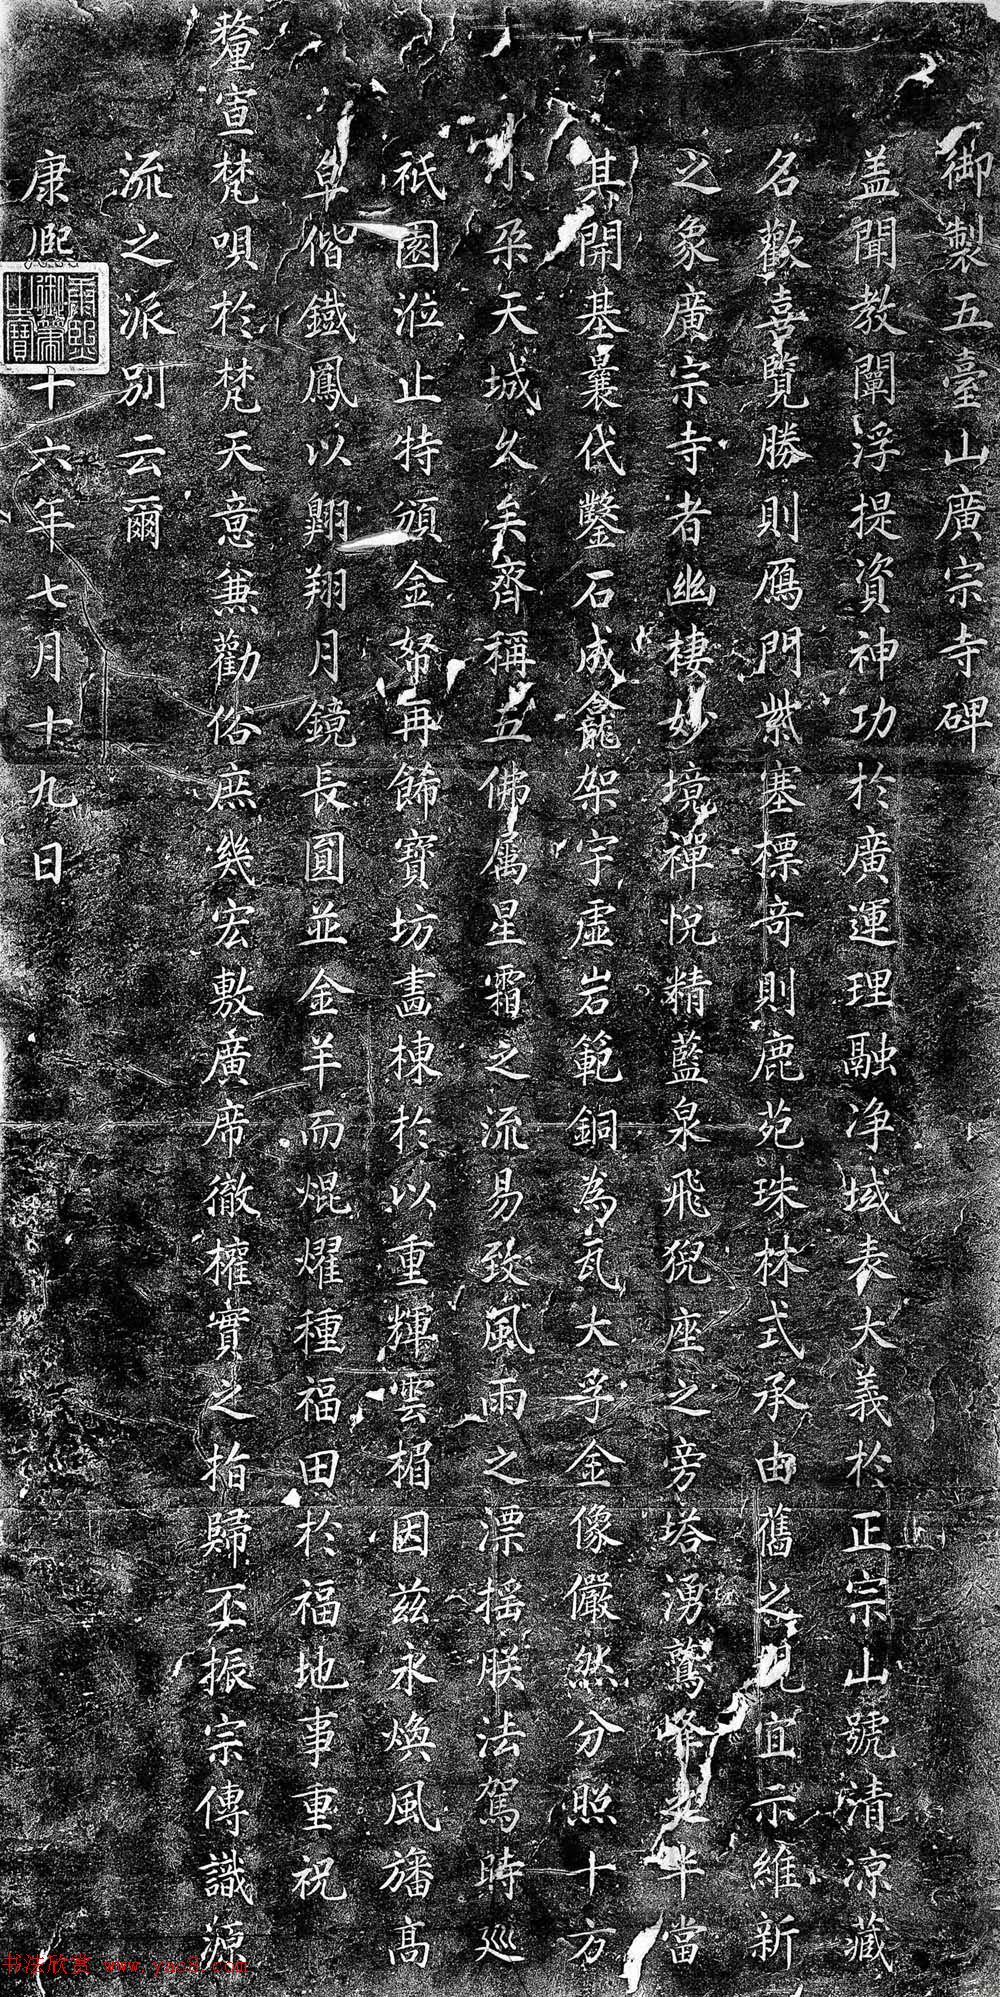 御製五臺山廣宗寺碑
盖聞教闡浮提資神功於廣運理融净域表大義於正宗山號清凉藏
名歡喜覽勝則鴈門紫塞標奇則鹿苑珠林式承由舊之規宜示維新
之象廣宗寺者幽棲妙境禪悅精藍泉飛猊座之旁塔湧鷲峰之半當
其開基曩代鑿石成龕架宇虛岩範銅為瓦大孚金像儼然分照十方
小朶天城久矣齊稱五佛属星霜之流易致風雨之漂摇朕法駕時廵
祇園涖止特頒金帑再餙寶坊畵棟於以重輝雲楣因兹永煥風旛高
卓偕鐵鳳以翺翔月鏡長圓並金羊而焜燿種福田於福地事重祝
釐宣梵唄於梵天意兼勸俗庶幾宏敷廣席徹權實之指歸丕振宗傳識源
流之派別云爾
康熙 十六年七月十九日
康熙御筆之寶
书法欣赏 www.yac8.com